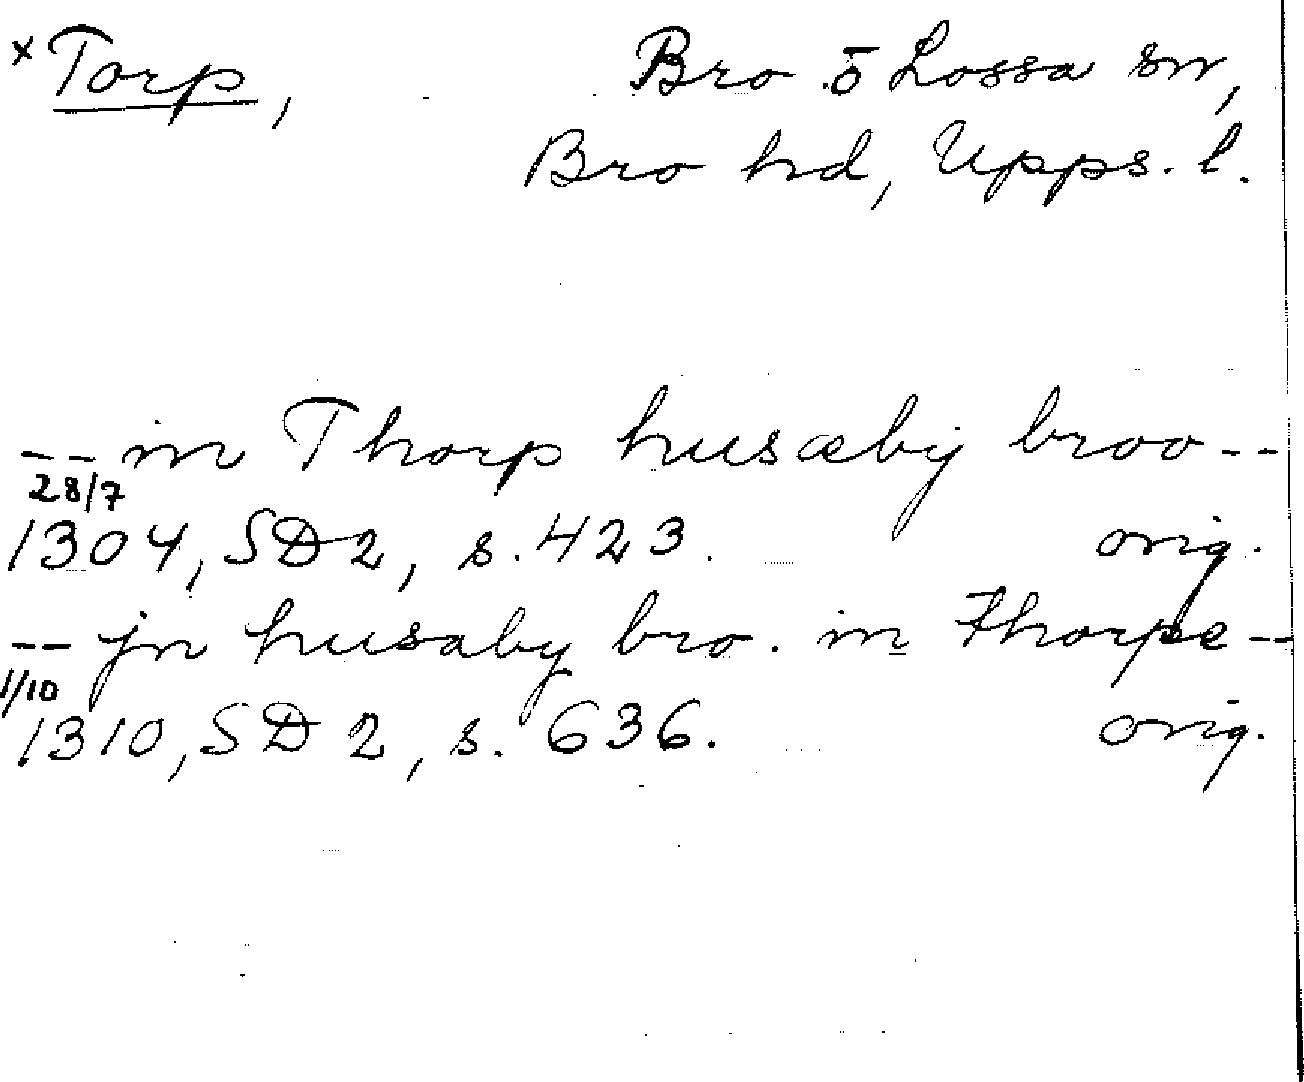 x Torp, Bro o Lossa sn,
Bro hd, Upps. l.
-- in Thorp husæby broo --
28/7
1304, SD 2, s. 423. orig.
-- jn husaby bro. in Thorpe --
1/10
1310, SD 2, s. 636. orig.